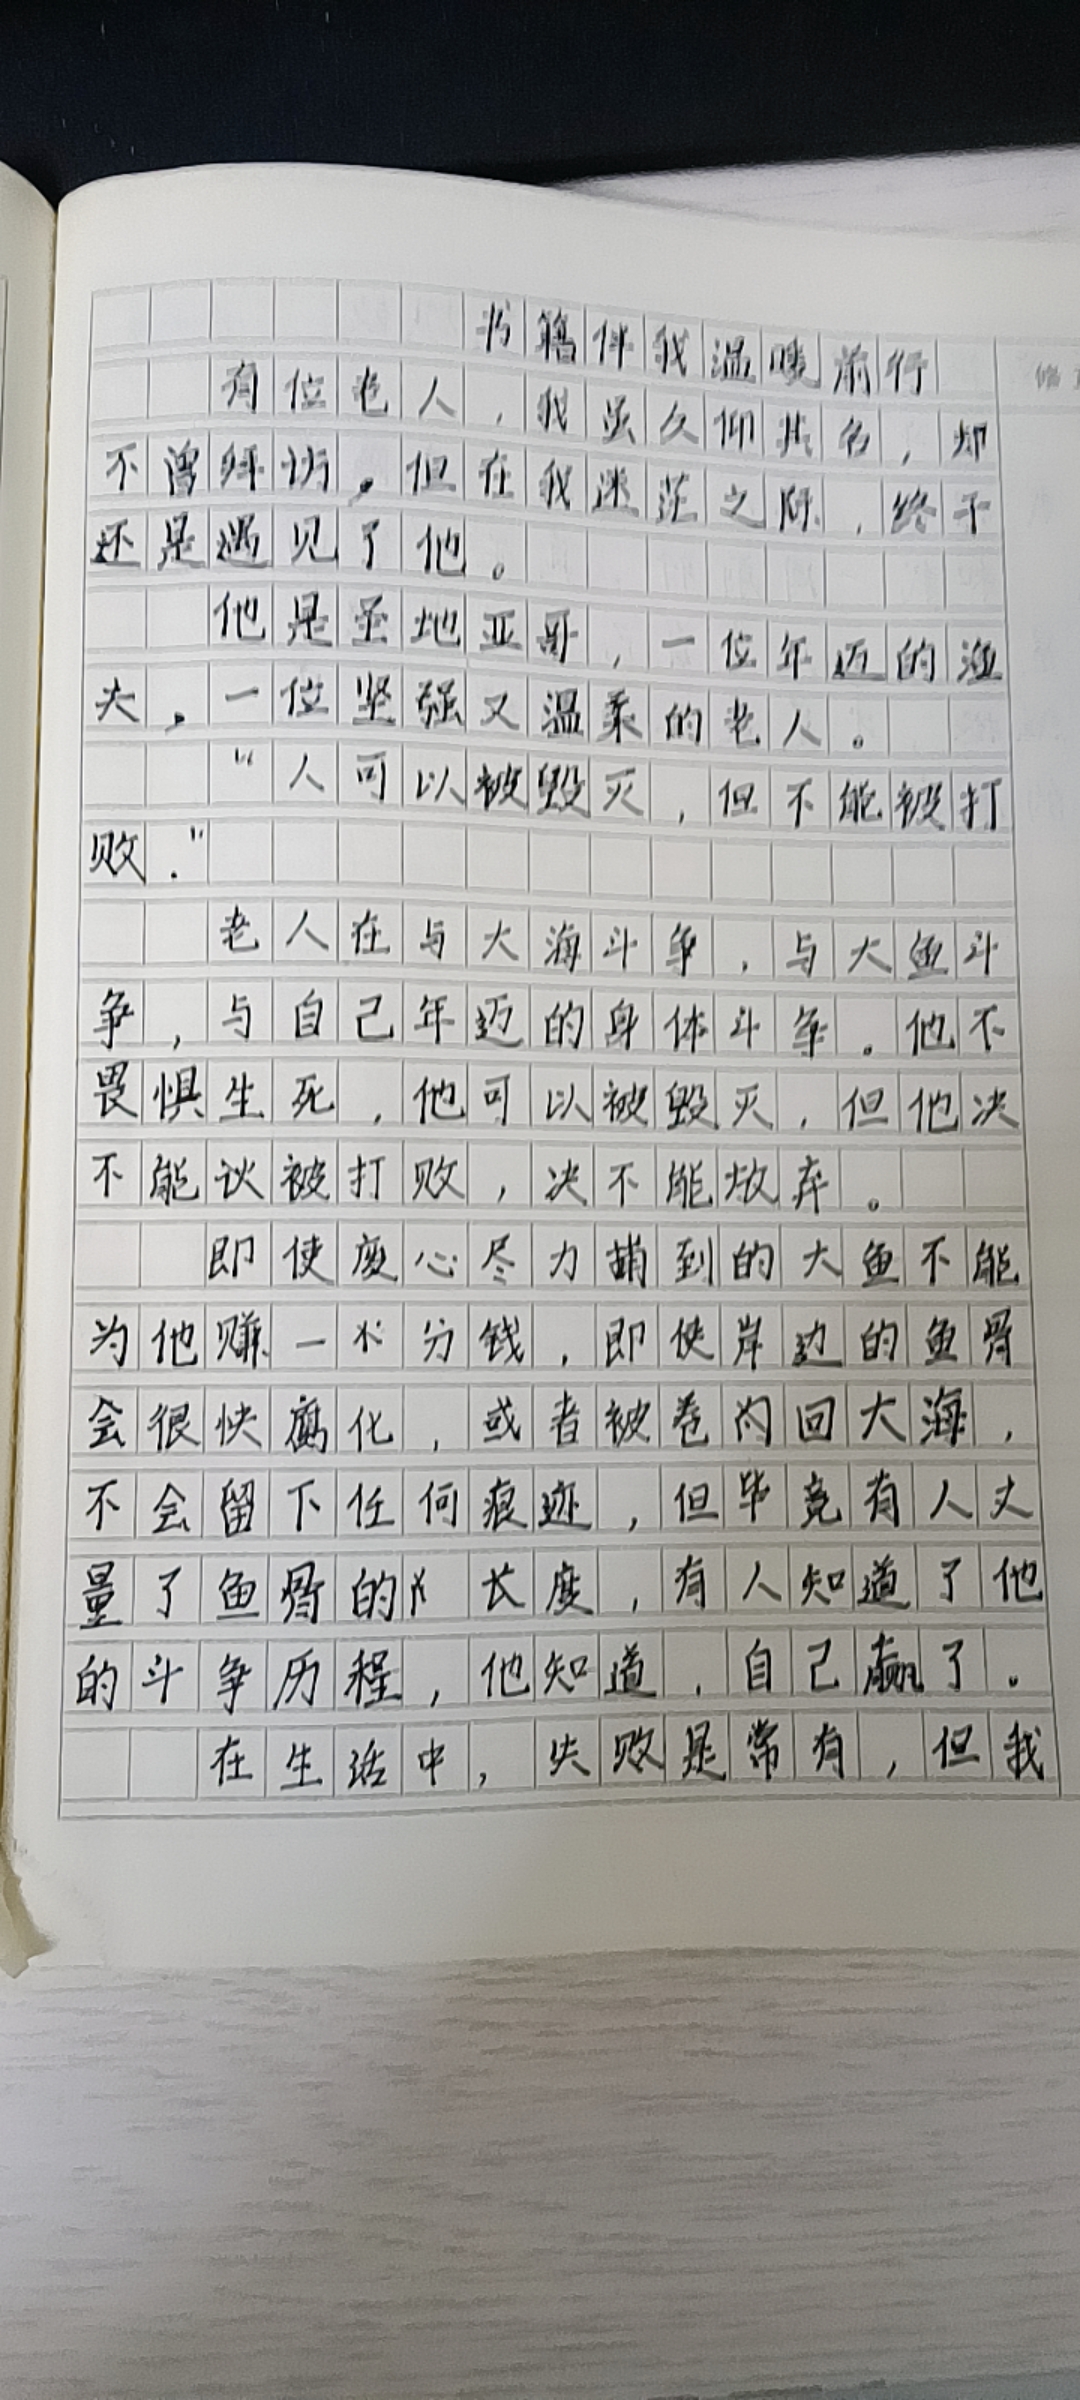 书籍伴我温暖前行
有位老人，我虽久仰其名，却
不曾拜访，但在我迷茫之际，终于
还是遇见了他。
他是圣地亚哥，一位年迈的渔
夫，一位坚强又温柔的老人。
“人可以被毁灭，但不能被打
败.”
老人在与大海斗争，与大鱼斗
争，与自己年迈的身体斗争。他不
畏惧生死，他可以被毁灭，但他决
不能说被打败，决不能放弃。
即使废心尽力捕到的大鱼不能
为他赚一分钱，即使岸边的鱼骨
会很快腐化，或者被卷回大海，
不会留下任何痕迹，但毕竟有人丈
量了鱼骨的长度，有人知道了他
的斗争历程，他知道，自己赢了。
在生活中，失败是常有，但我